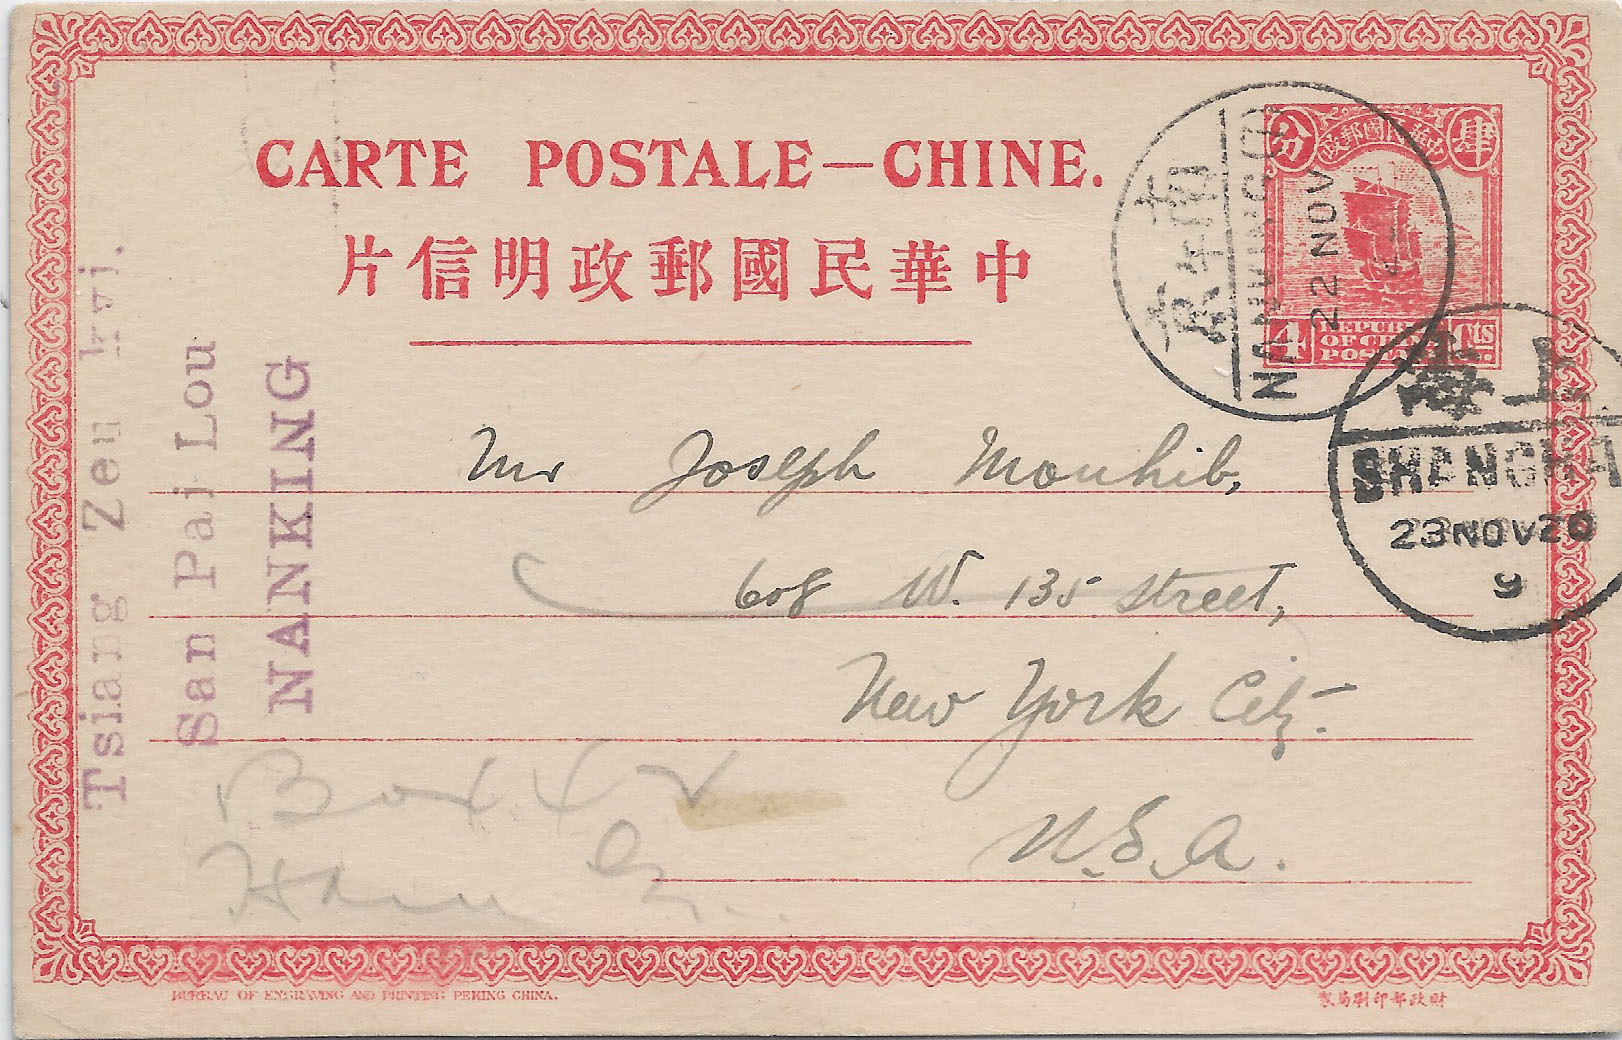 CARTE POSTALE—CHINE.
中華民國郵政明信片
分 肆
4 Cts
REPUBLIC
OF CHINA
POSTAGE
南京
NANKING
22 NOV
上海
SHANGHAI
23 NOV 20
9
Tsiang Zeu
San Pai Lou
NANKING
Mr Joseph Mouhib,
608 W. 135 street,
New York City.
U.S.A.
Box
BUREAU OF ENGRAVING AND PRINTING PEKING CHINA.
財政部印刷局製